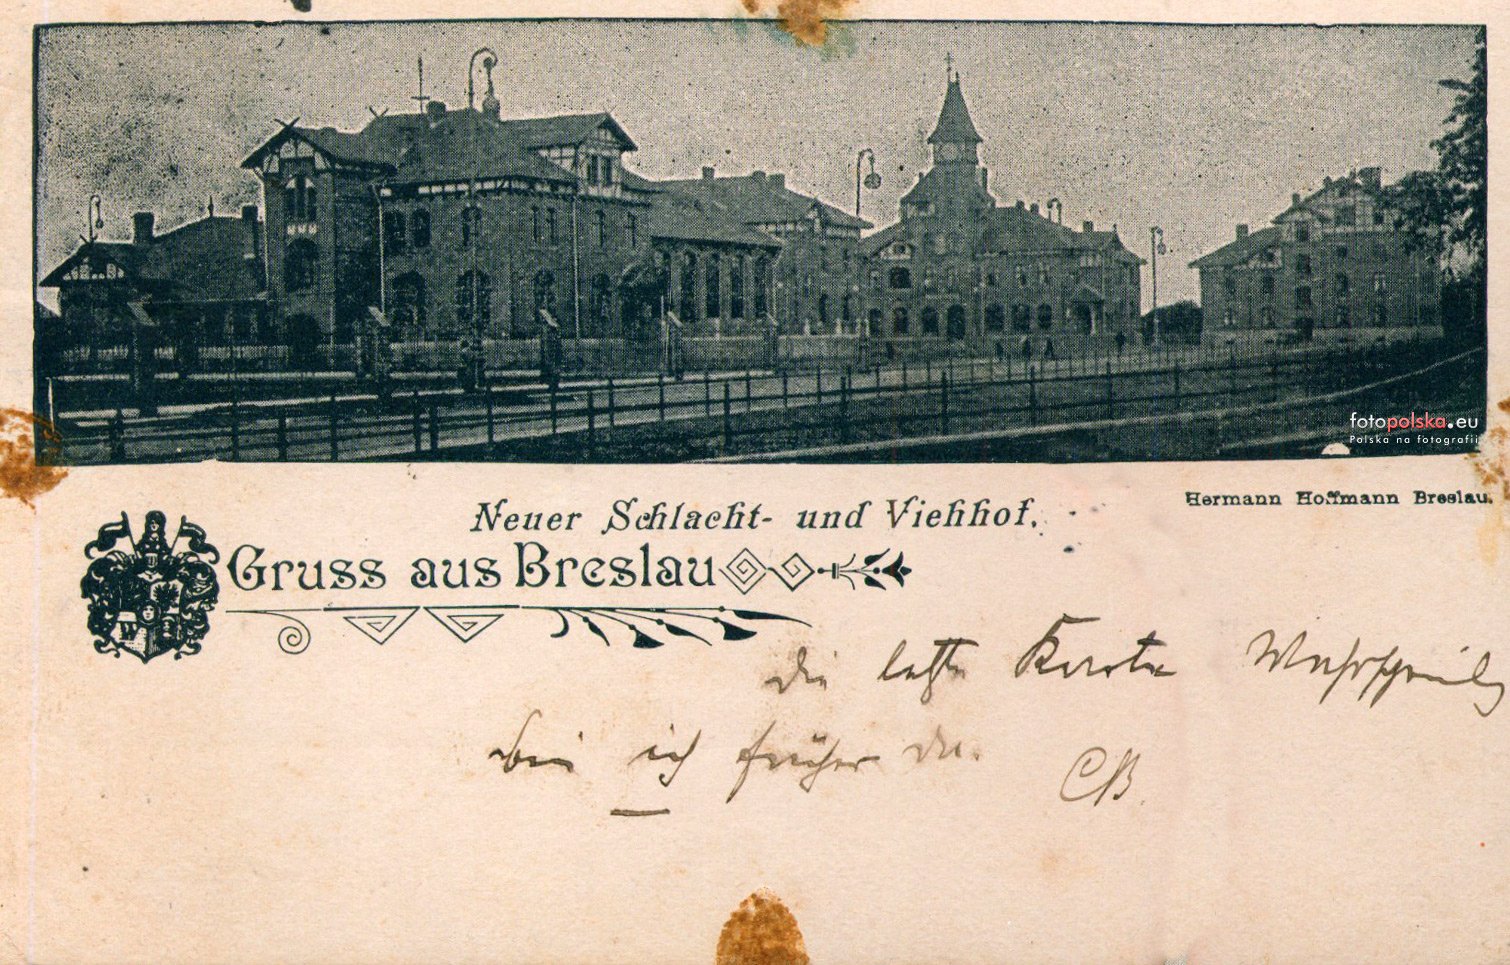 fotopolska.eu
Polska na fotografii
Hermann Hoffmann Breslau.
Neuer Schlacht- und Viehhof.
Gruss aus Breslau
W
die letzte Karte
bin ich früher da.
CB.